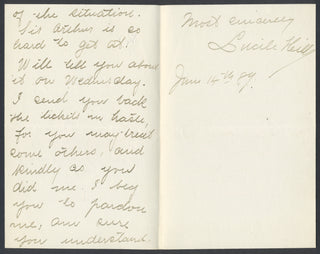 of the situation.
Sis Archer is so
hard to get at!
Will tell you about
it on Wednesday.
I send you back
the tickets in haste,
for you may treat
some others, and
kindly as you
did me. I beg
you to pardon
me, am sure
you understand.
Most sincerely
Lucile Hill
June 14th 89.